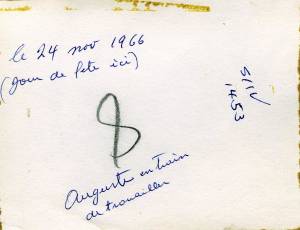 le 24 nov 1966
(Jour de fete ici)
8
Auguste en train
de travailler
S/IV
1453